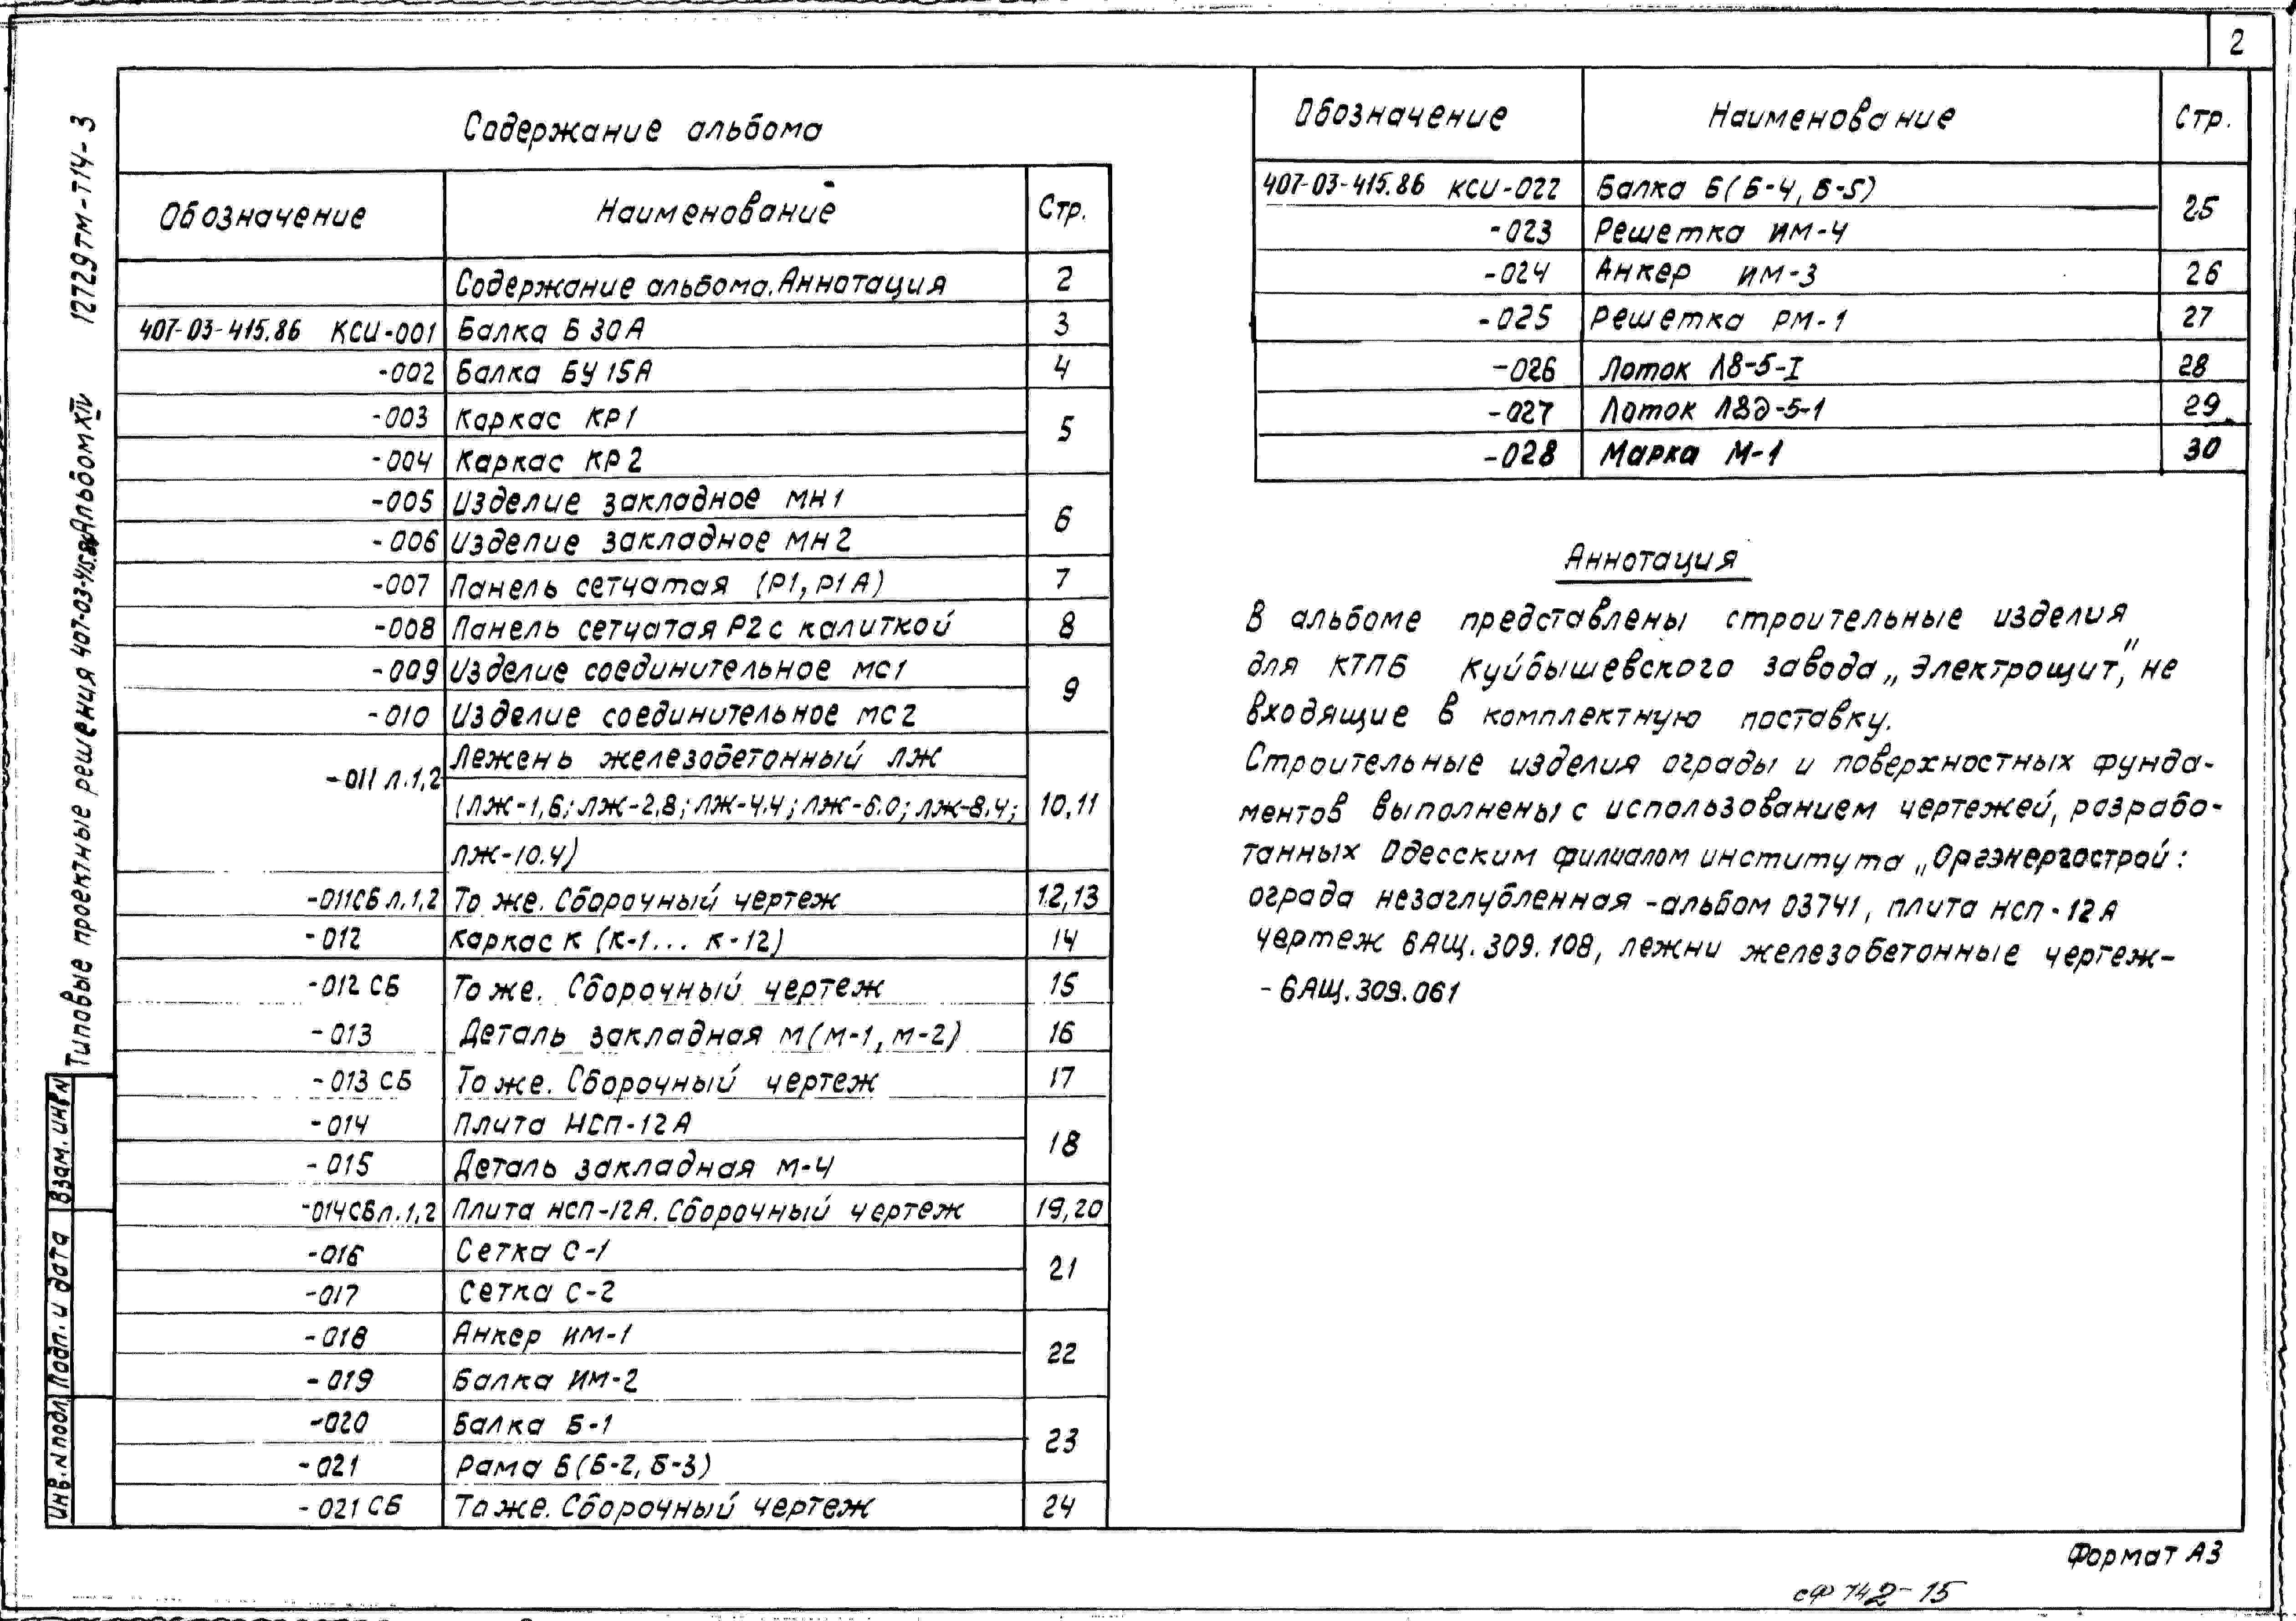 2
12729тм-т14-3
Типовые проектные решения 407-03-415.86 Альбом XIV
Содержание альбома
Обозначение Наименование Стр.
Содержание альбома. Аннотация 2
407-03-415.86 КСИ-001 Балка Б30А 3
-002 Балка БУ15А 4
-003 Каркас КР1 5
-004 Каркас КР2
-005 Изделие закладное МН1 6
-006 Изделие закладное МН2
-007 Панель сетчатая (Р1, Р1А) 7
-008 Панель сетчатая Р2 с калиткой 8
-009 Изделие соединительное МС1 9
-010 Изделие соединительное МС2
-011 л.1,2 Лежень железобетонный ЛЖ
(ЛЖ-1,6; ЛЖ-2,8; ЛЖ-4.4; ЛЖ-6.0; ЛЖ-8.4; 10,11
ЛЖ-10.4)
-011СБ л.1,2 То же. Сборочный чертеж 12,13
-012 Каркас К (К-1... К-12) 14
-012 СБ То же. Сборочный чертеж 15
-013 Деталь закладная М (М-1, М-2) 16
-013 СБ То же. Сборочный чертеж 17
-014 Плита НСП-12А 18
-015 Деталь закладная М-4
-014СБ л.1,2 Плита НСП-12А. Сборочный чертеж 19,20
-016 Сетка С-1 21
-017 Сетка С-2
-018 Анкер ИМ-1 22
-019 Балка ИМ-2
-020 Балка Б-1 23
-021 Рама Б (Б-2, Б-3)
-021 СБ То же. Сборочный чертеж 24
Обозначение Наименование Стр.
407-03-415.86 КСИ-022 Балка Б (Б-4, Б-5) 25
-023 Решетка ИМ-4
-024 Анкер ИМ-3 26
-025 Решетка РМ-1 27
-026 Лоток Л8-5-I 28
-027 Лоток Л8д-5-1 29
-028 Марка М-1 30
Аннотация
В альбоме представлены строительные изделия
для КТПБ Куйбышевского завода „Электрощит", не
входящие в комплектную поставку.
Строительные изделия ограды и поверхностных фунда-
ментов выполнены с использованием чертежей, разрабо-
танных Одесским филиалом института „Оргэнергострой:
ограда незаглубленная - альбом 03741, плита НСП-12А
чертеж 6АЩ.309.108, лежни железобетонные чертеж-
- 6АЩ.309.061
Взам. инв N
Подп. и дата
Инв. N подл
Формат А3
сф 742-15